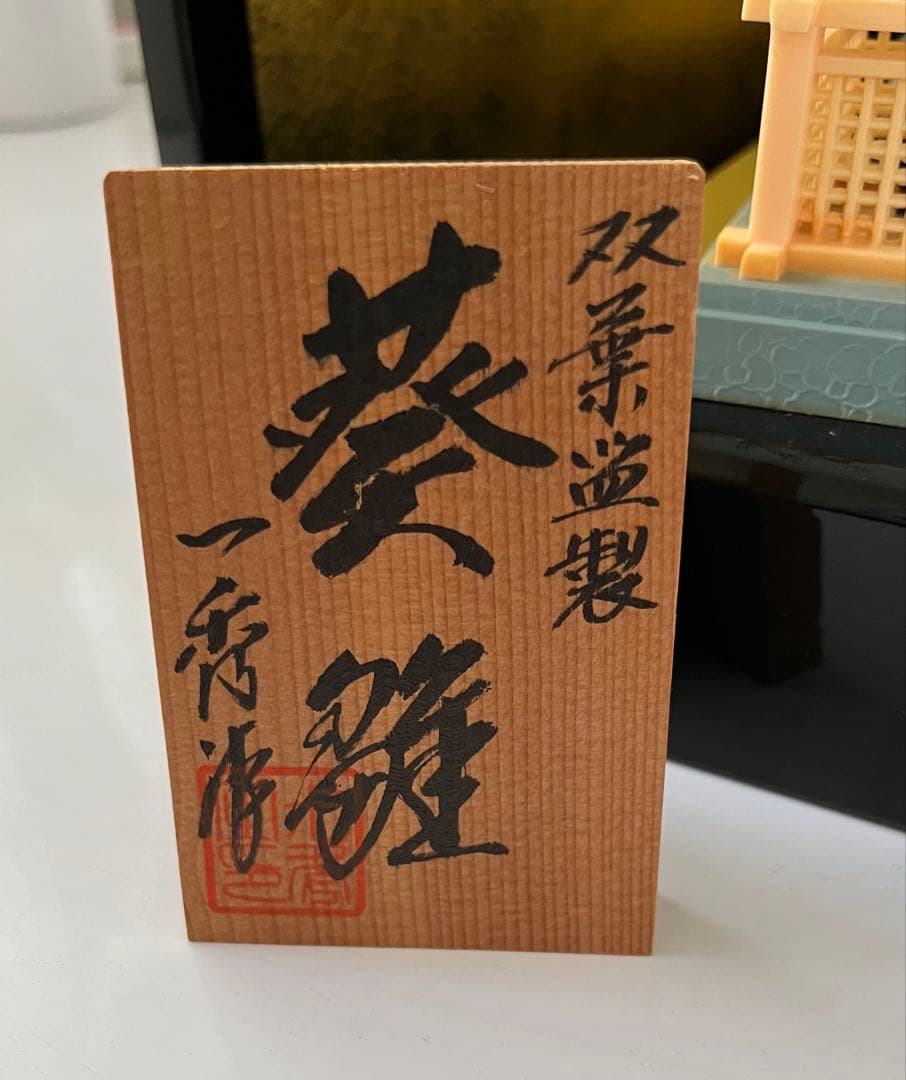 双葉監製
葵雛
一秀作